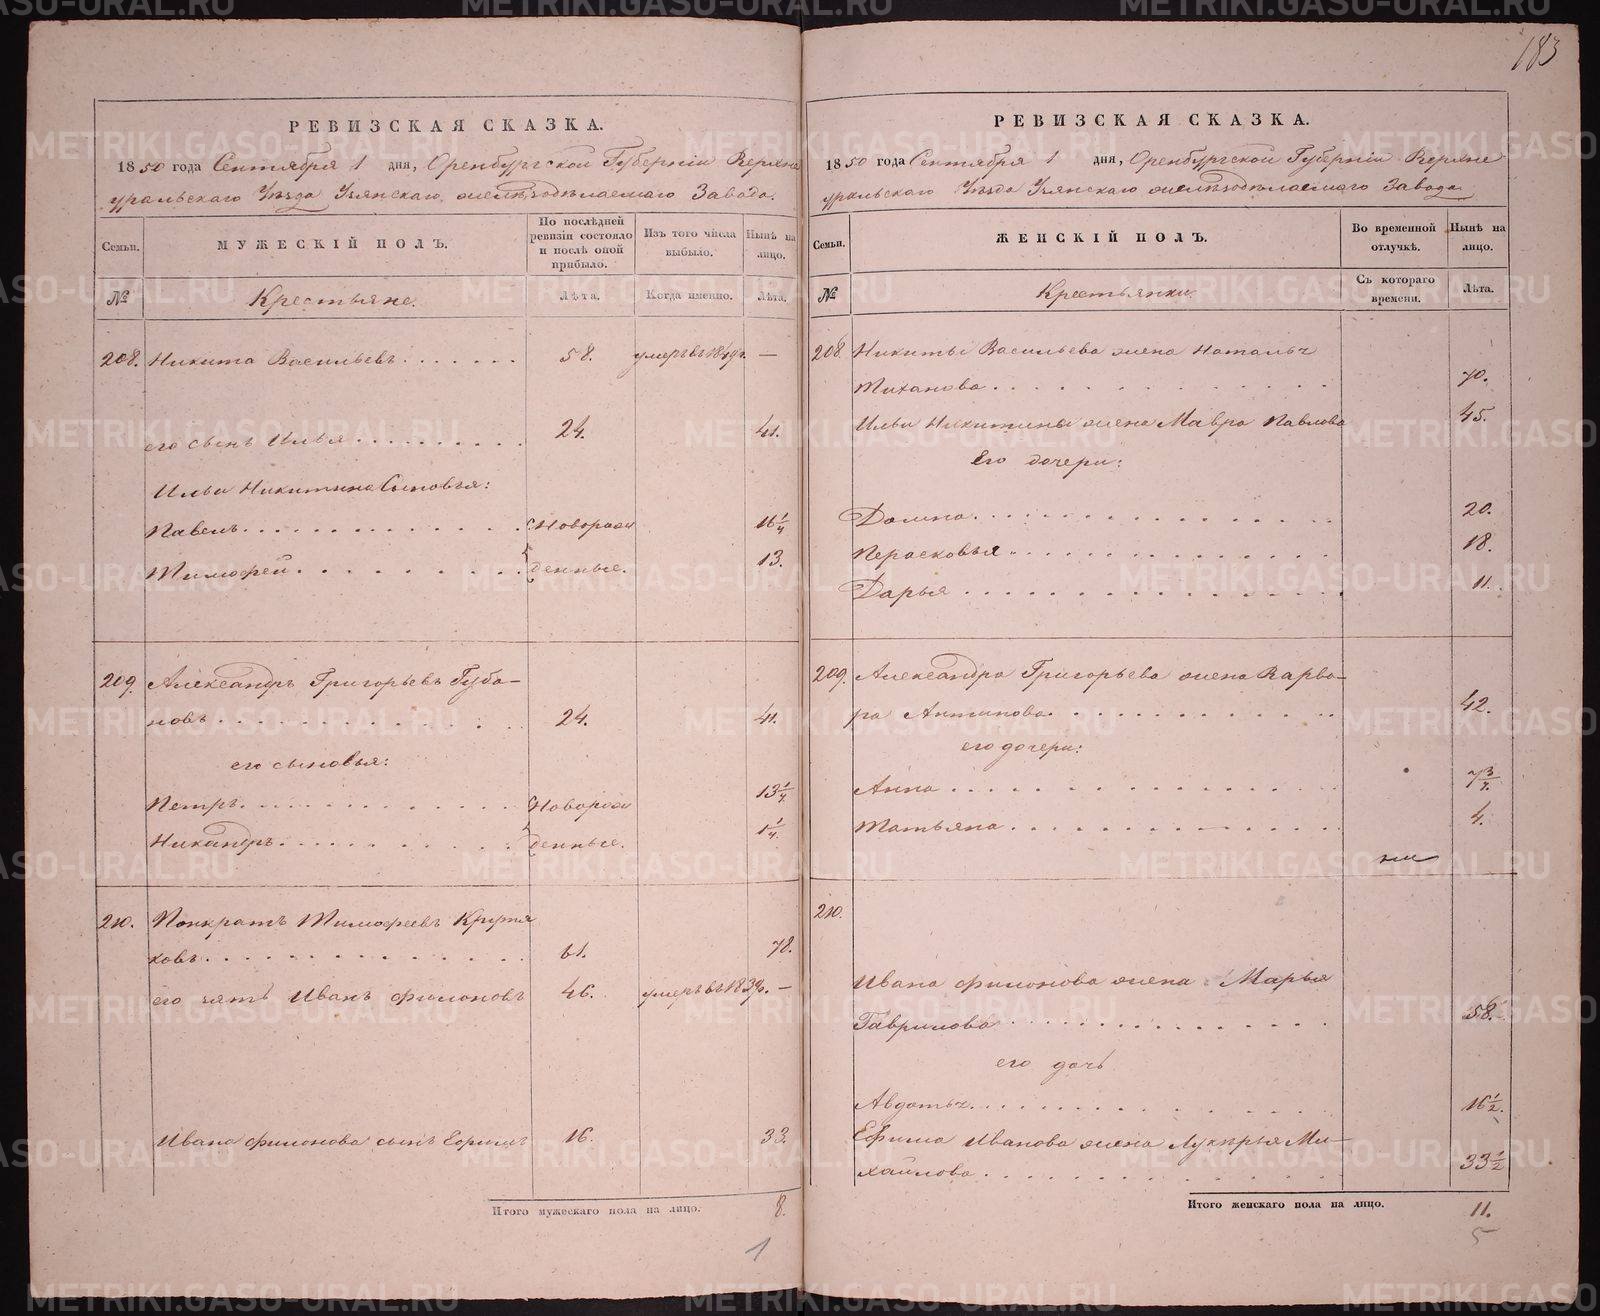 183
РЕВИЗСКАЯ СКАЗКА.
1850 года Сентября 1 дня, Оренбургской Губерніи Верхне
уральскаго Уѣзда Узянскаго желѣзодѣлаемаго Завода.
Семьи.
МУЖЕСКІЙ ПОЛЪ.
По послѣдней ревизіи состояло и послѣ оной прибыло.
Изъ того числа выбыло.
Нынѣ на лицо.
№
Крестьяне.
Лѣта.
Когда именно.
Лѣта.
208. Никита Васильевъ 58. умеръ въ 1849г. —
его сынъ Илья 24. 41.
Ильи Никитина Сыновья:
Павелъ Новорож 16 1/4
Тимофей денные. 13.
209. Александръ Григорьевъ Губа-
новъ 24. 41.
его сыновья:
Петръ Новорож 13 1/4
Никандръ денные. 1 1/4
210. Понкратъ Тимофеевъ
ковъ 61. 78.
его зять Иванъ Филоновъ 46. умеръ въ —
Ивана Филонова сынъ Ефимъ 16. 33.
Итого мужескаго пола на лицо. 8.
1
РЕВИЗСКАЯ СКАЗКА.
1850 года Сентября 1 дня, Оренбургской Губерніи Верхне
уральскаго Уѣзда Узянскаго желѣзодѣлаемаго Завода
Семьи.
ЖЕНСКІЙ ПОЛЪ.
Во временной отлучкѣ.
Нынѣ на лицо.
№
Крестьянки.
Съ котораго времени.
Лѣта.
208. Никиты Васильева жена Наталья
Тиханова 70.
Ильи Никитина жена Мавра Павлова 45.
Его дочери:
Домна 20.
Перасковья 18.
Дарья 11.
209. Александра Григорьева жена Варва-
ра Антипова 42.
его дочери:
Анна 7 3/4
Татьяна 4.
210.
Ивана Филонова жена Марья
Гаврилова 58.
его дочь
Авдотья 16 1/2.
Ефима Иванова жена Лукерья Ми-
хайлова 33 1/2
Итого женскаго пола на лицо. 11.
5
METRIKI.GASO-URAL.RU